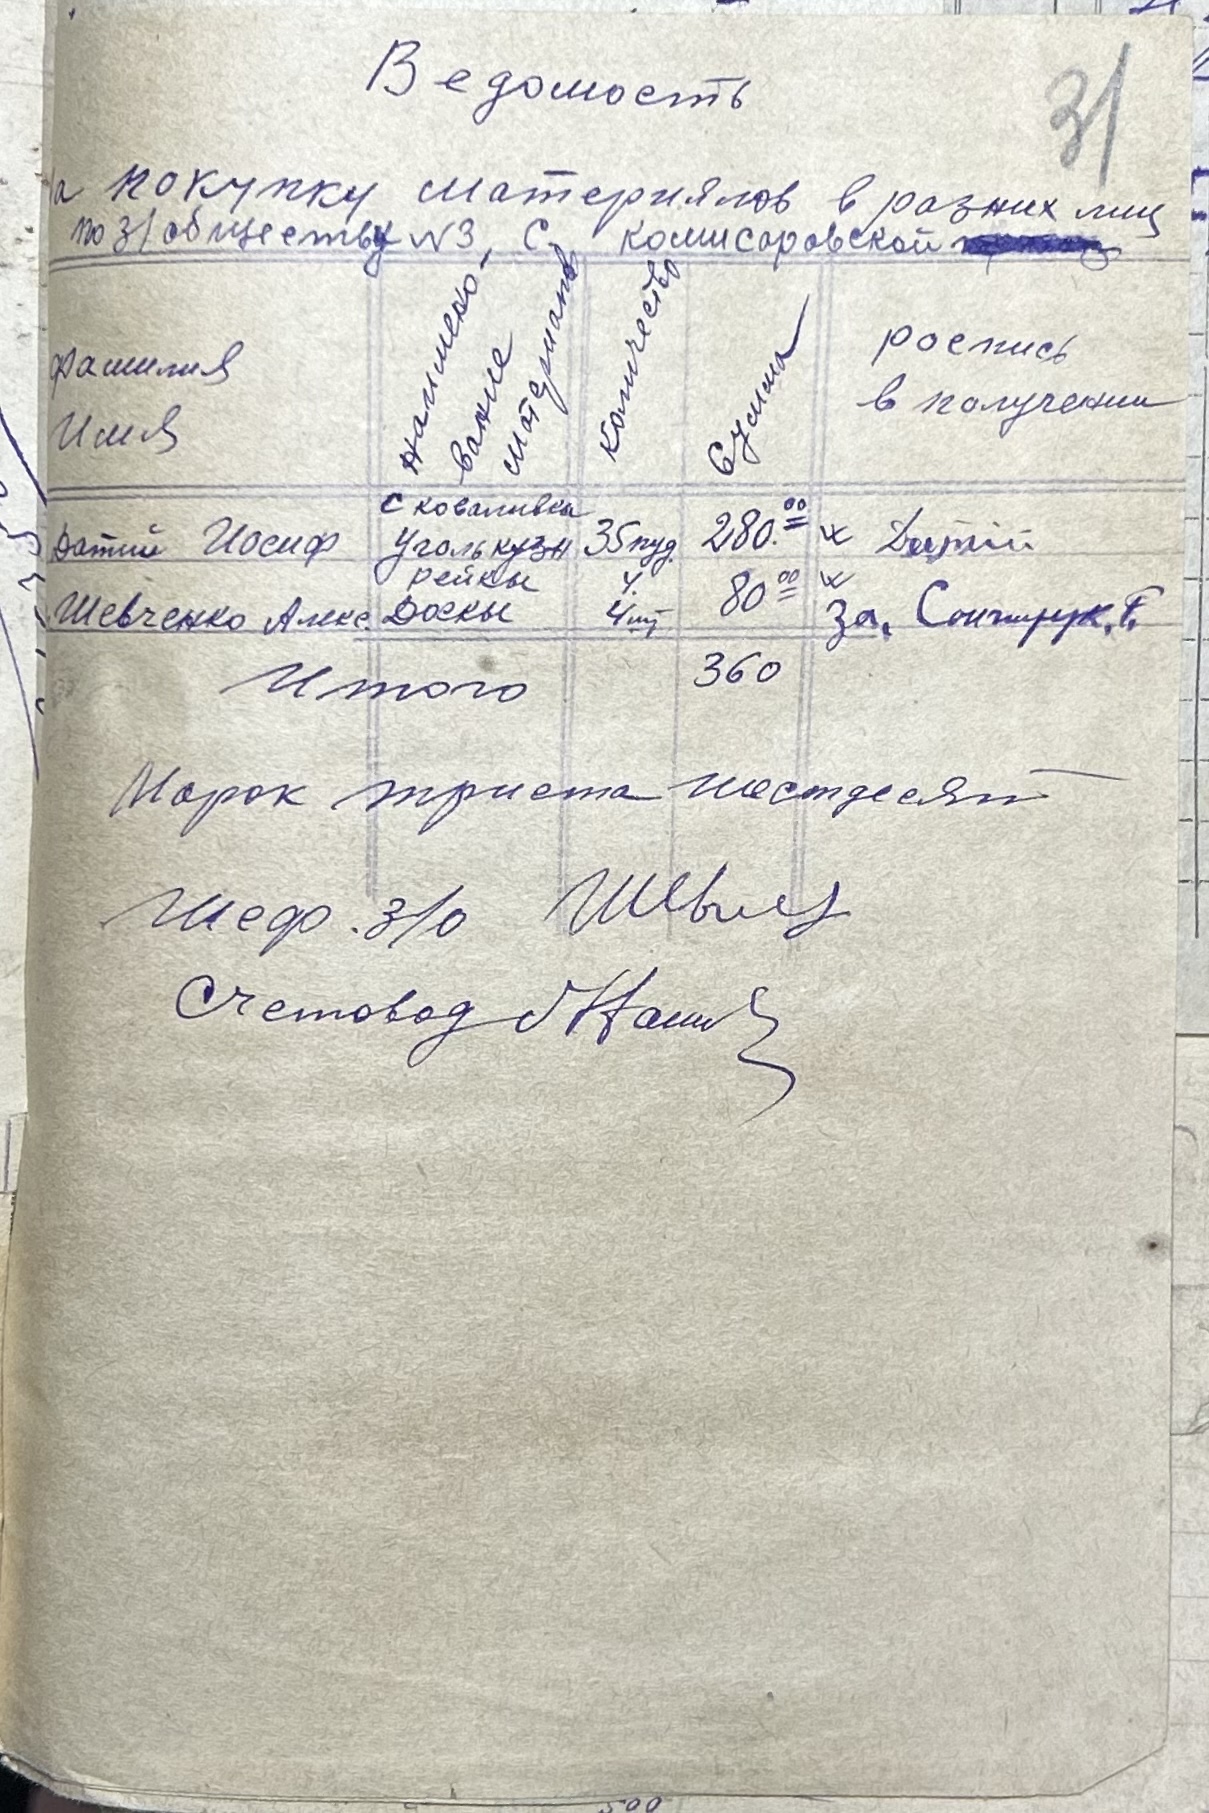 31
Ведомость
на покупку материялов в разних лиц
по з/обществу №3, С. комисаровской
Фамилия Имя
наимено-вание материалов
Количество
Сумма
роспись в получении
с коваливка
Датий Иосиф уголь кузн 35 пуд. 280.00 х Датій
рейкы 4. х
Шевченко Алекс. Доскы 4 шт 80.00 За,
Итого 360
Марок триста шестдесят
Шеф. з/о
Счетовод